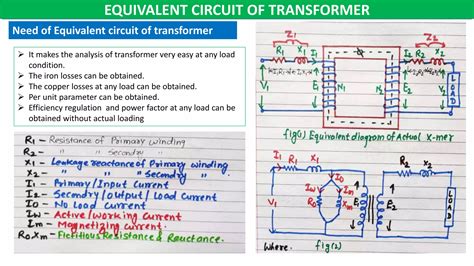 EQUIVALENT CIRCUIT OF TRANSFORMER
Need of Equivalent circuit of transformer
➤ It makes the analysis of transformer very easy at any load
condition.
➤ The iron losses can be obtained.
➤ The copper losses at any load can be obtained.
➤ Per unit parameter can be obtained.
➤ Efficiency regulation and power factor at any load can be
obtained without actual loading
R1 - Resistance of Primary winding
R2 - " " Secondry "
X1 - Leakage reactance of Primary winding.
X2 - " " " Secondry "
I1 - Primary/Input Current
I2 - Secondry/Output/Load Current
I0 - No Load Current
Iw - Active/working Current
Im - Magnetizing current.
R0, Xm - Fictitious Resistance & Reactance.
Z1
R1 X1 I1
V1
E1
N1
N2
E2
Z2
I2 R2 X2
V2
LOAD
fig(1) Equivalent diagram of Actual X-mer
I1 R1 X1
V1
I0
Iw Im
R0 Xm
E1
E2
R2 X2
I2
V2
LOAD
Where,
fig(2)